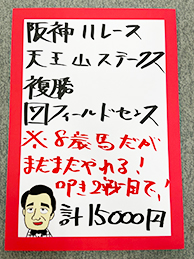 阪神11レース
天王山ステークス
複勝
⑦フィールドセンス
※8歳馬だが
まだまだやれる!
叩き2戦目で、!
計15000円